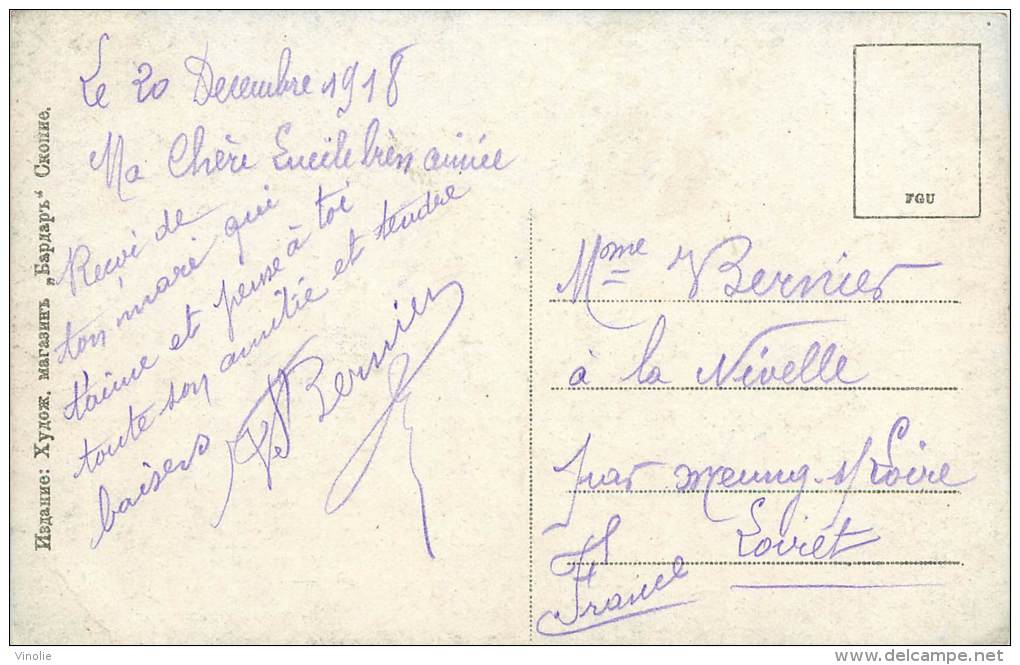 Le 20 Decembre 1918
Ma Chère Lucile très aimée
Recoi de
ton mari qui
t'aime et pense à toi
toute son amitié et tendre
baisers
Bernier
Издание: Худож. магазинъ „Вардаръ“ Скопие.
FGU
Mme Bernier
à la Nivelle
par Meung s/Loire
Loiret
France
Vinolie
www.delcampe.net